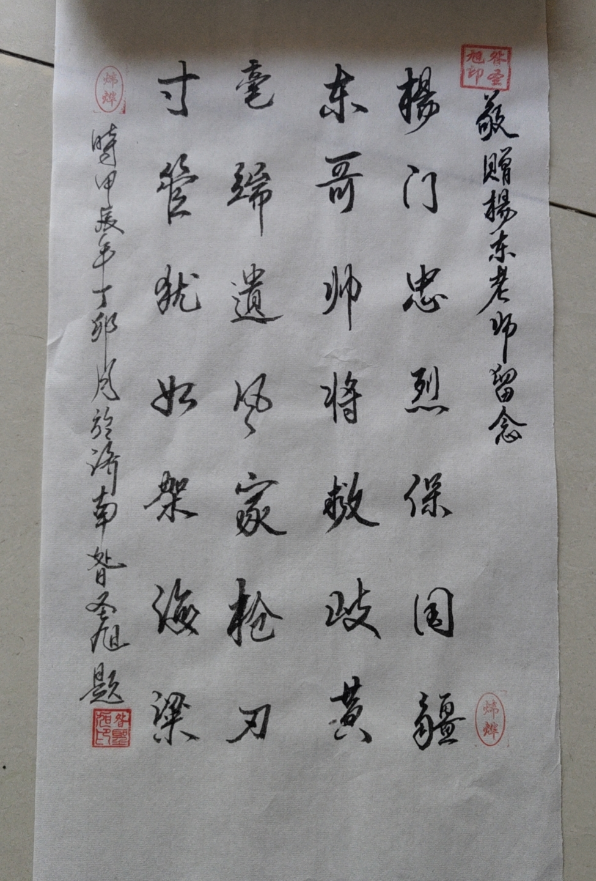 敬贈楊东老师留念
楊门忠烈保国疆
东哥帅将救岐黄
毫端遺风家枪刃
寸管犹如架海梁
時甲辰年丁卯月於济南昝圣旭题